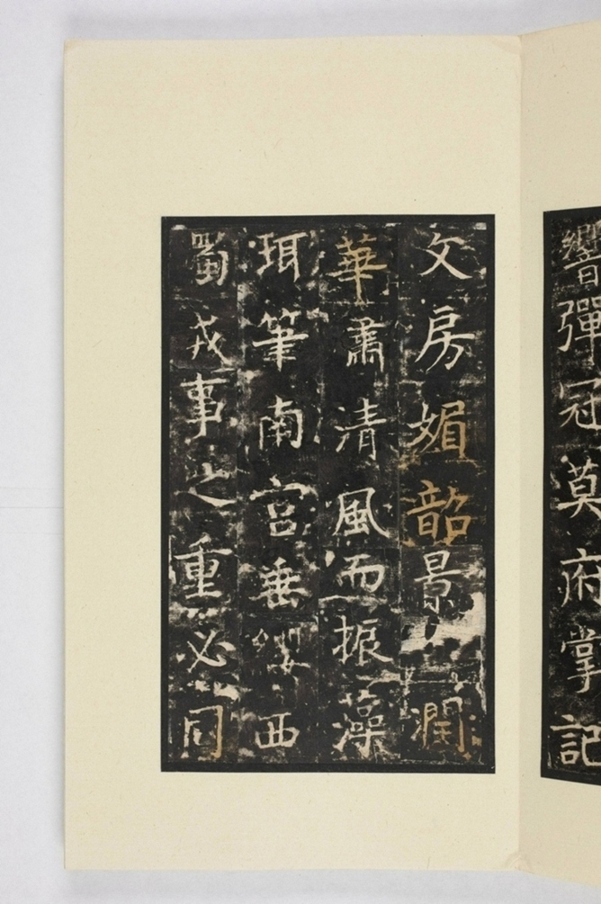 響彈冠莫府掌記
文房媚韶景潤
華肅清風而振藻
珥筆南宮垂纓西
蜀戎事之重必同